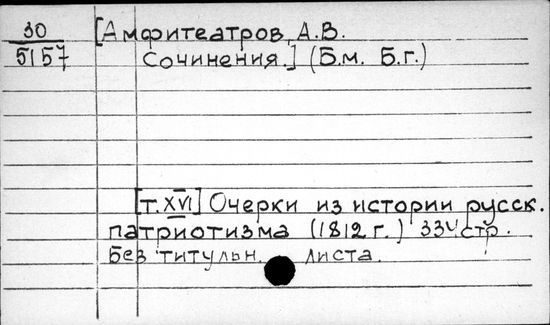 30 [Амфитеатров, А.В.
5157 Сочинения.] (Б.м. Б.г.)
[т. XVI] Очерки из истории русск.
патриотизма (1812 г.) 334 стр.
Без титульн. листа.